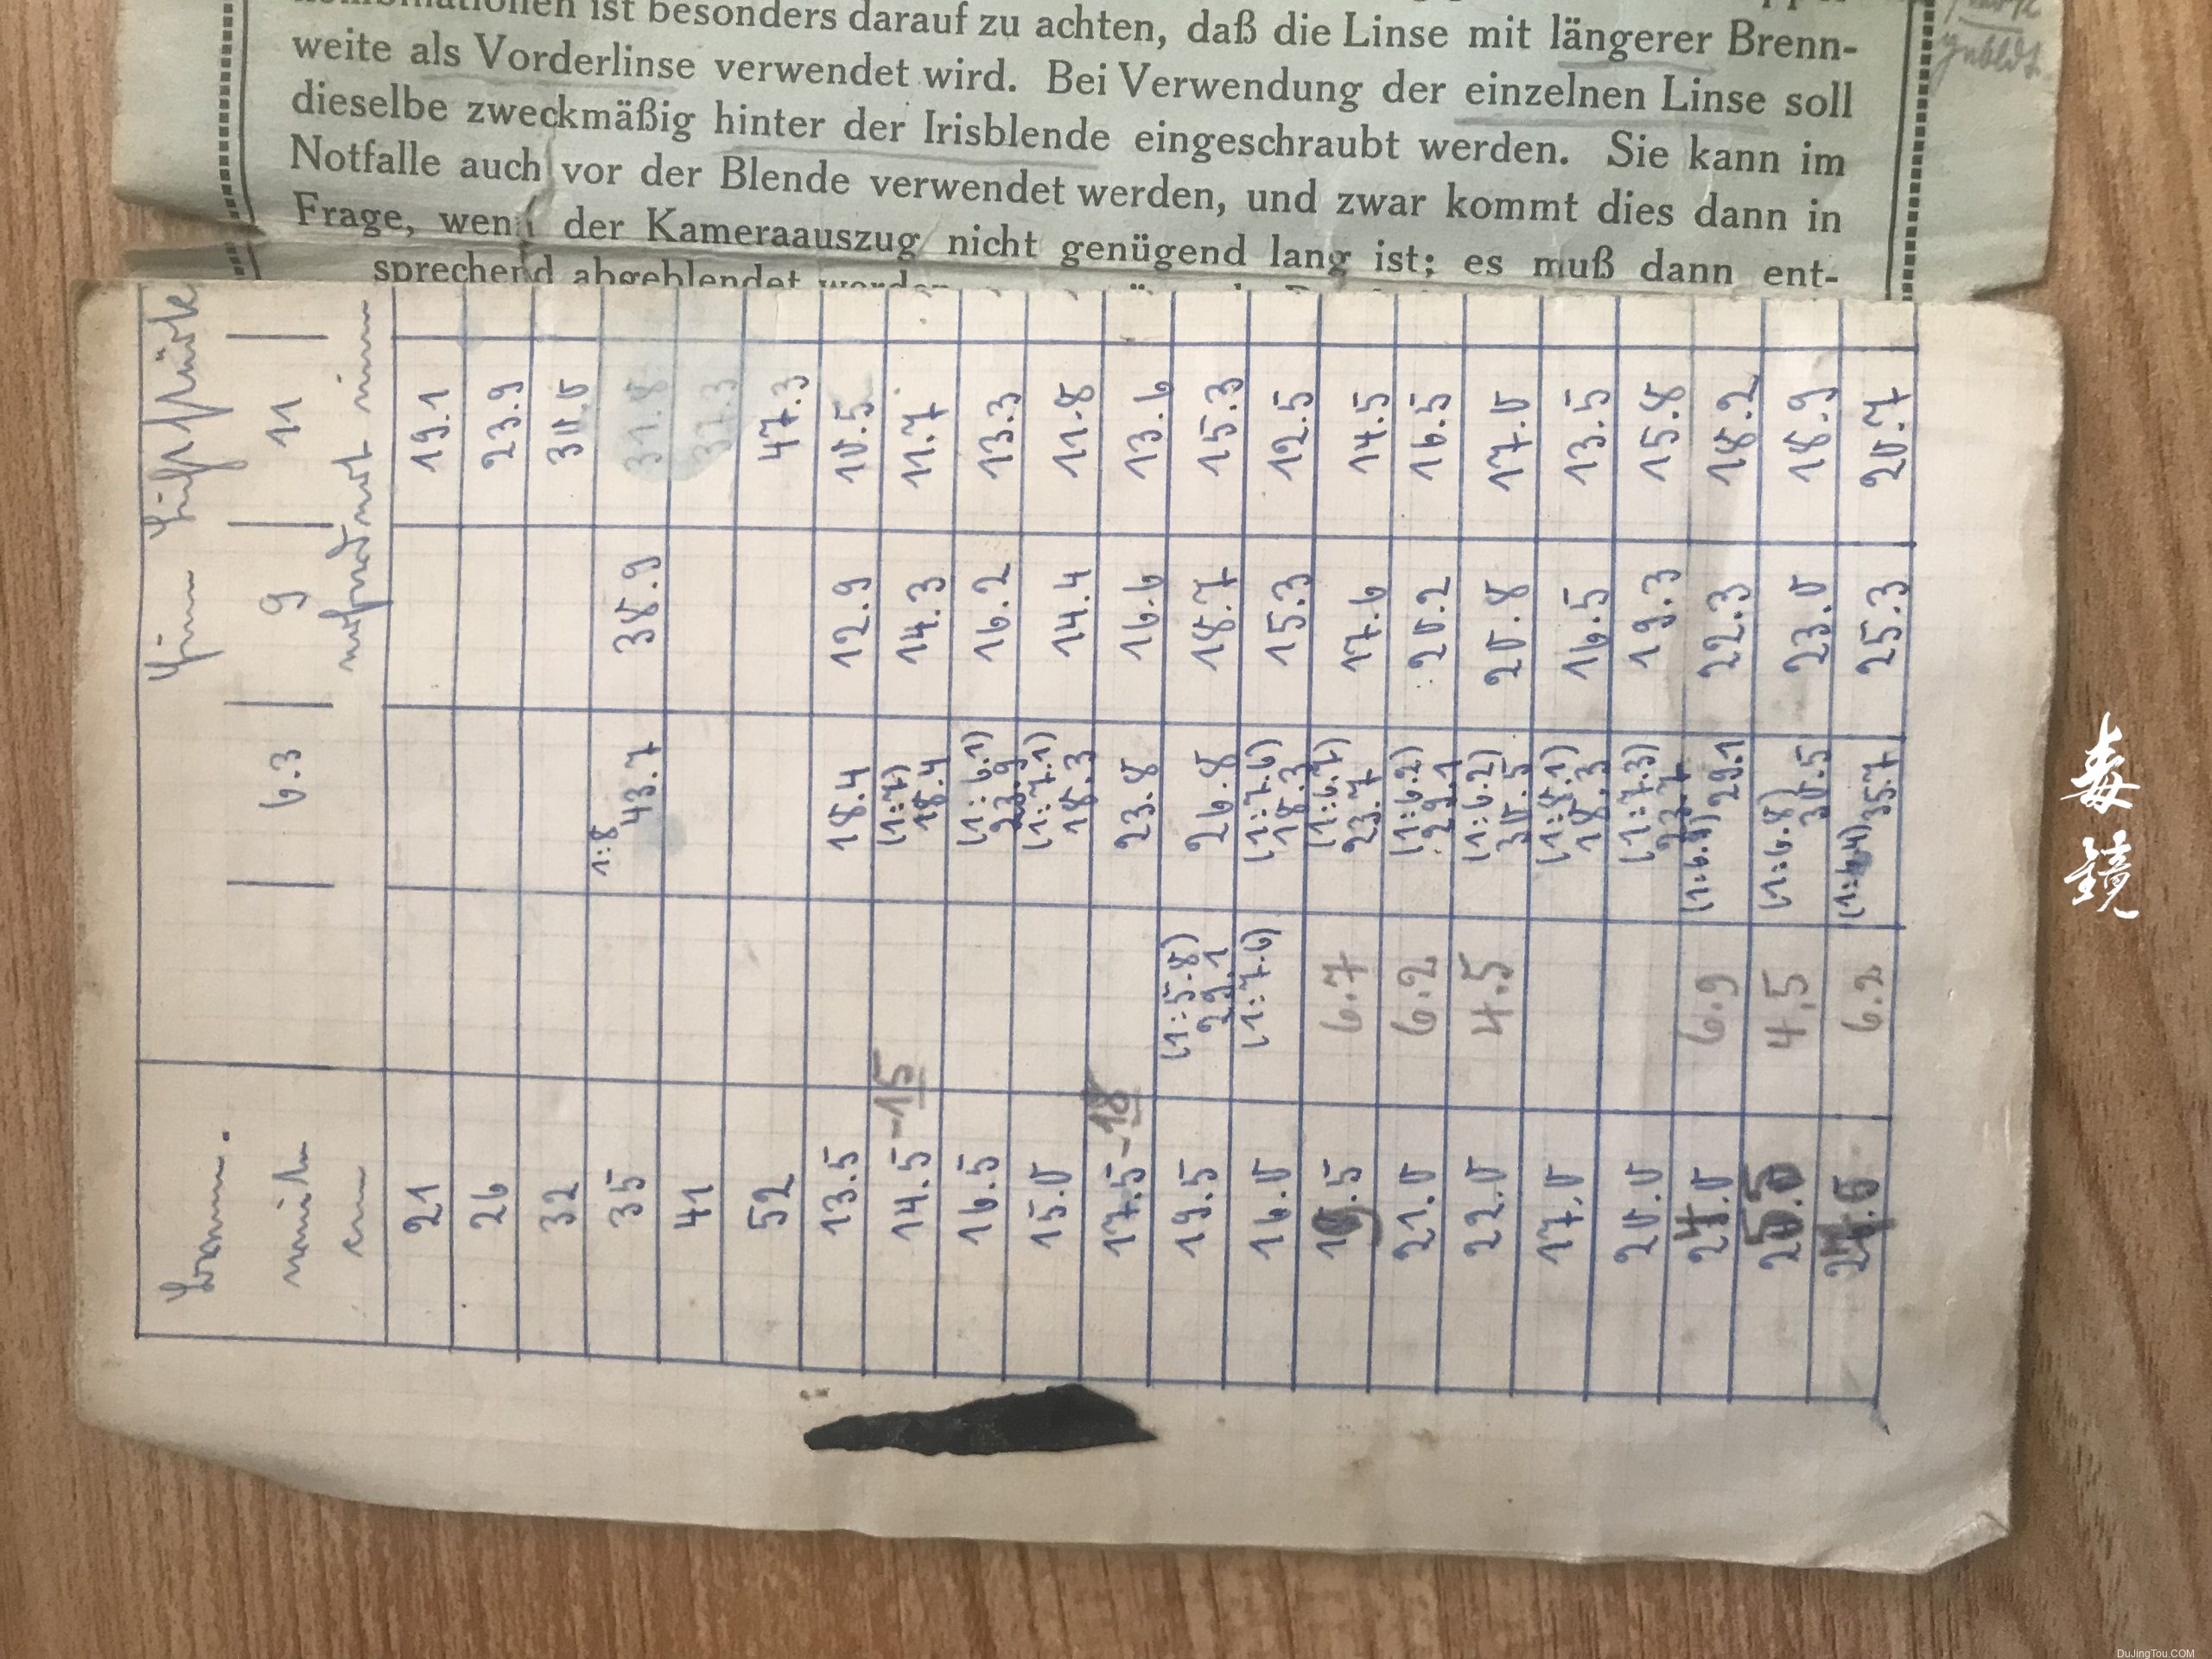 ist besonders darauf zu achten, daß die Linse mit längerer Brenn-
weite als Vorderlinse verwendet wird. Bei Verwendung der einzelnen Linse soll
dieselbe zweckmäßig hinter der Irisblende eingeschraubt werden. Sie kann im
Notfalle auch vor der Blende verwendet werden, und zwar kommt dies dann in
Frage, wenn der Kameraauszug nicht genügend lang ist; es muß dann ent-
sprechend abgeblendet werden
Brenn-
weite
cm
6.3 9 11
21 19.1
26 23.9
32 30.0
35 1:8 43.7 38.9 31.8
41 37.3
52 47.3
13.5 18.4 12.9 10.5
14.5 -15 (1:7) 18.4 14.3 11.7
16.5 (1:6.1) 23.9 16.2 13.3
15.0 (1:7.1) 18.3 14.4 11.8
17.5 -18 23.8 16.6 13.6
19.5 (1:5.8) 29.1 26.8 18.7 15.3
16.0 (1:7.6) (1:7.6) 18.3 15.3 12.5
6.7 (1:6.7) 23.7 17.6 14.5
21.0 6.2 (1:6.2) 29.1 20.2 16.5
22.0 4.5 (1:6.2) 30.5 20.8 17.0
17.0 (1:8.1) 18.3 16.5 13.5
20.0 (1:7.3) 23.7 19.3 15.8
6.9 (1:6.9) 29.1 22.3 18.2
4.5 (1:6.8) 30.5 23.0 18.9
6.2 (1:6.4) 35.7 25.3 20.7
毒镜
DuJingTou.COM